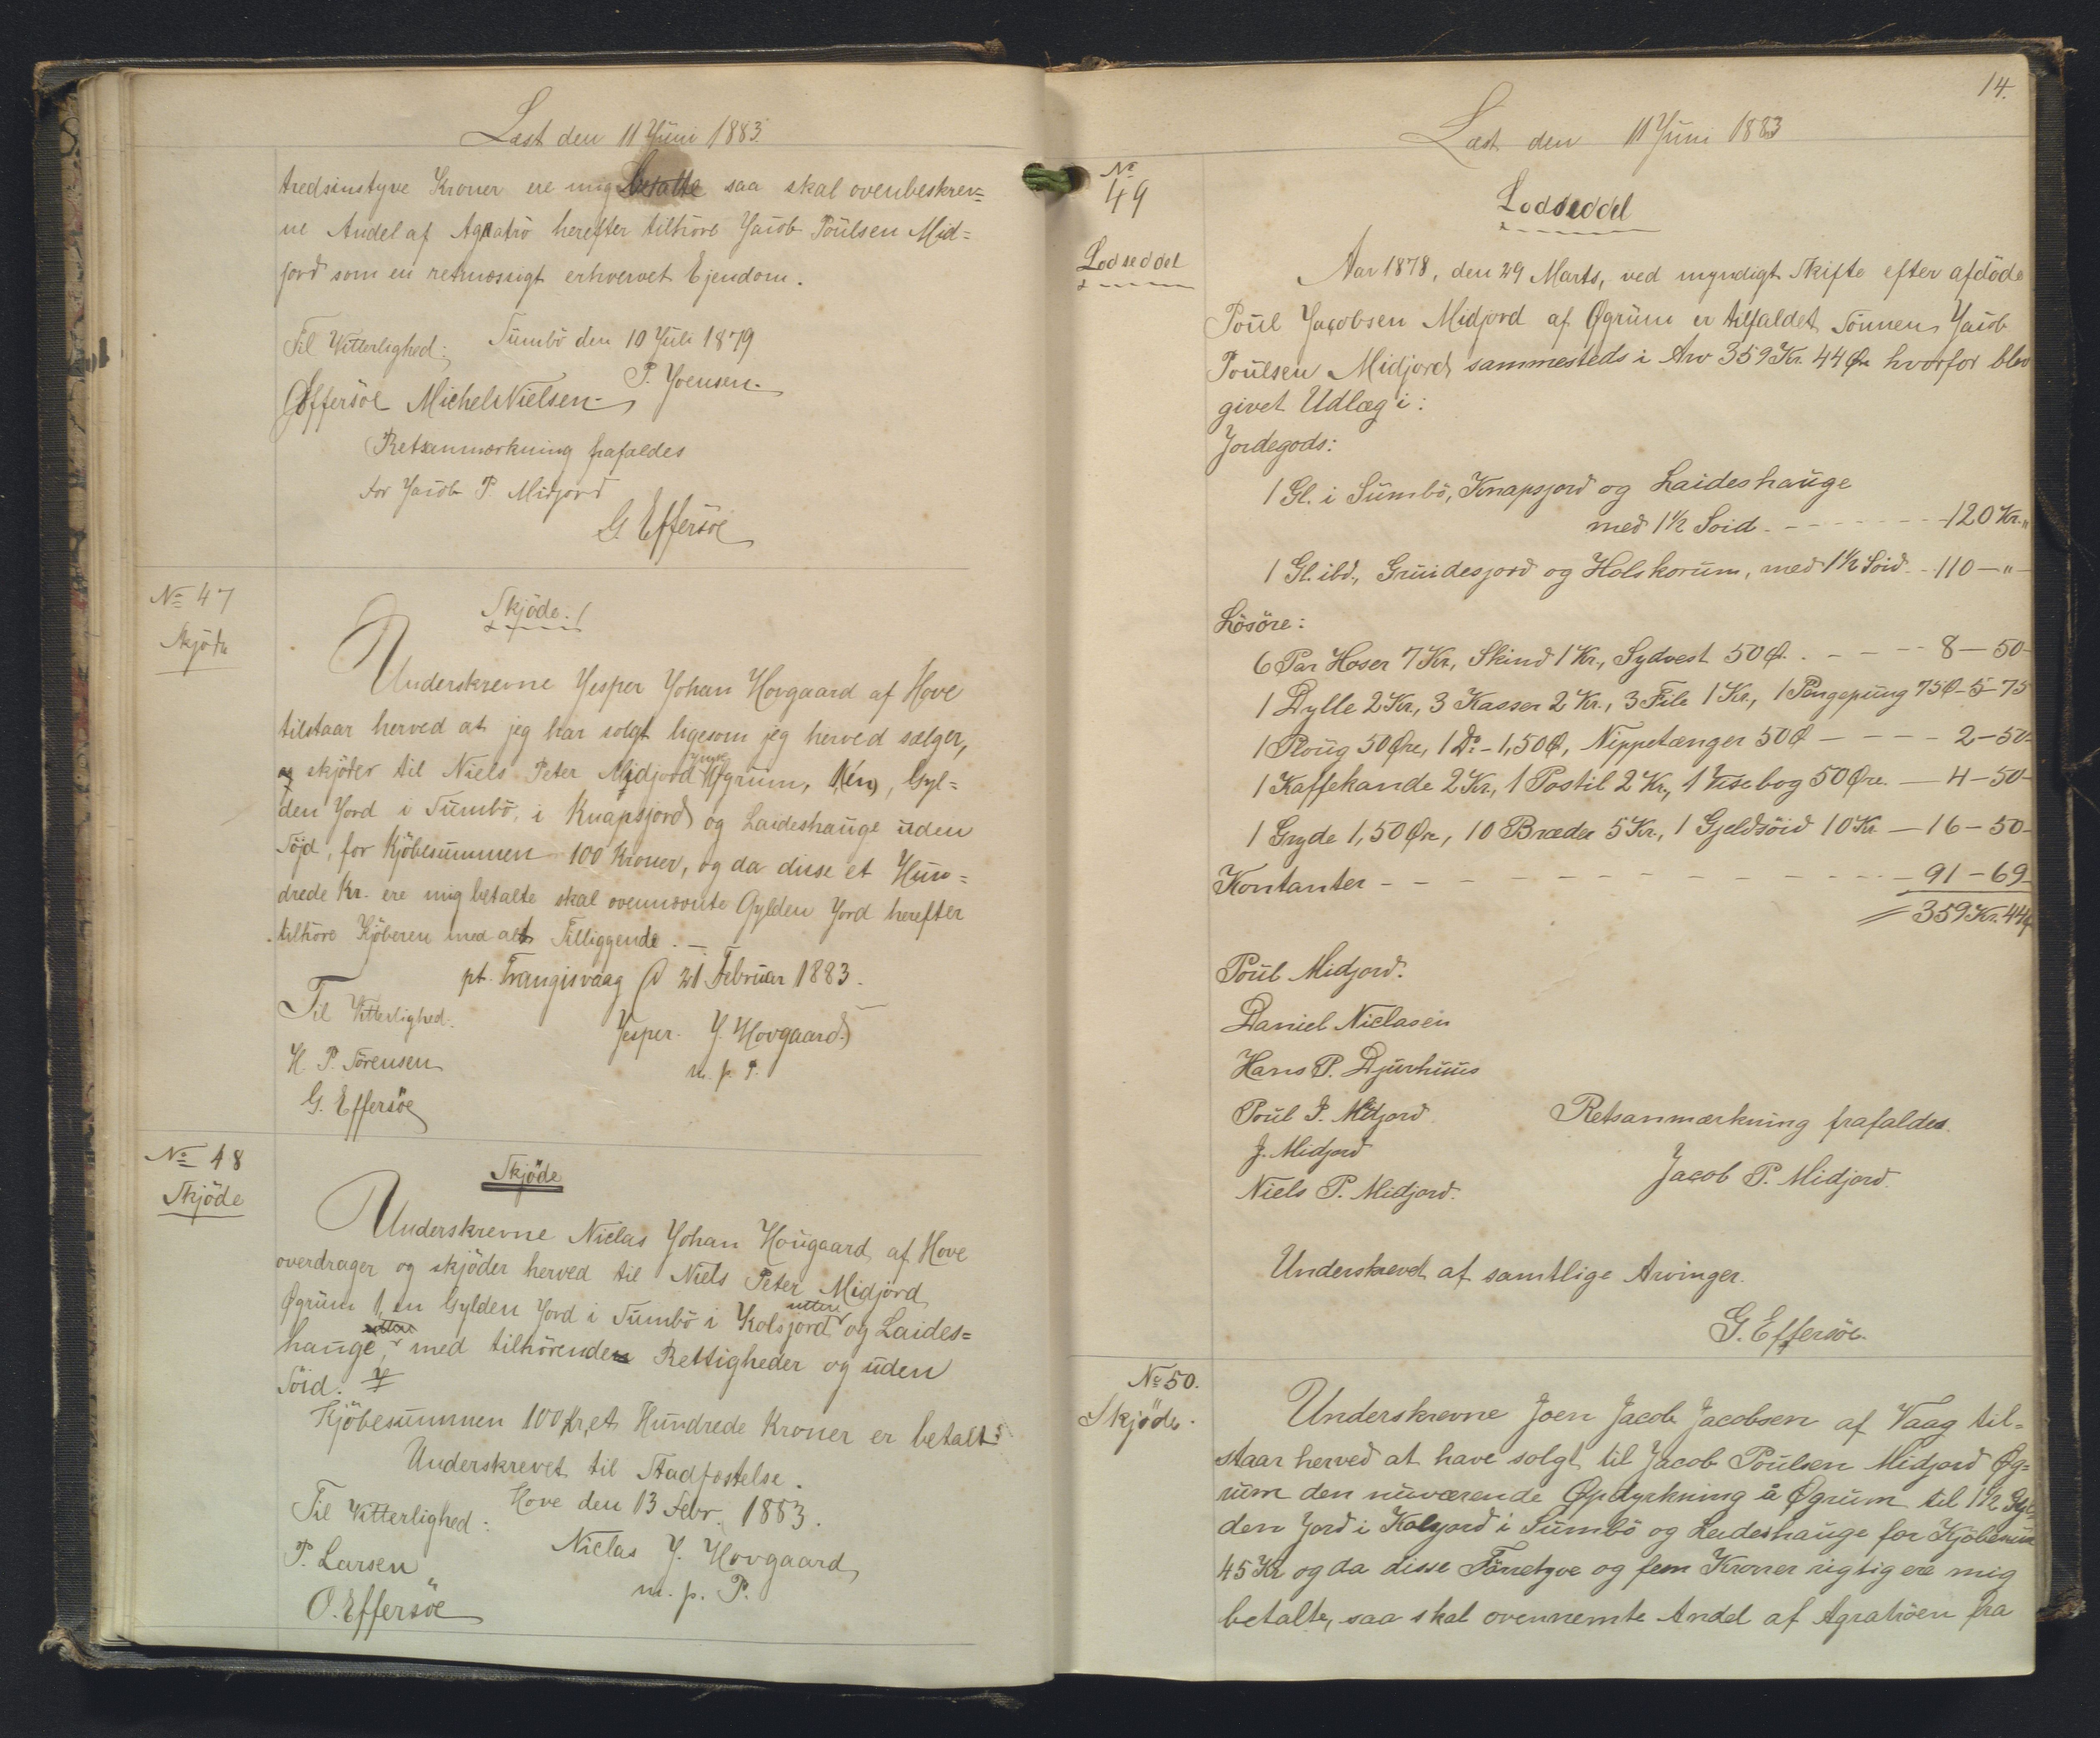 Læst den 11 Juni 1883.
tredsinstyve Kroner ere mig betalte saa skal ovenbeskrev=
ne Andel af Agratrö herefter tilhöre Jacob Poulsen Mid=
jord som en retmæssigt erhvervet Ejendom.
Til Vitterlighed: Sumbö den 10 Juli 1879
P. Joensen.
GEffersöe Michel Nielsen.
Retsanmærkning frafaldes
for Jacob P. Midjord
G. Effersöe
No 47
Skjöde
Skjöde.
Underskrevne Jesper Johan Hovgaard af Hove
tilstaar herved at jeg har solgt ligesom jeg herved sælger,
og skjöder til Niels Peter Midjord Øgrum, 1(én), Gyl=
den Jord i Sumbö, i Knapsjord og Laideshauge uden
Söjd, for Kjöbesummen 100 Kroner, og da disse et Hun=
drede Kr. ere mig betalte skal ovennævnte Gylden Jord herefter
tilhöre Kjöberen med alt Tilliggende.
pt. Trangisvaag d 21 Februar 1883.
Til Vitterlighed:
Jesper J. Hovgaard
m. p. P.
H. P. Sörensen
G. Effersöe
No 48
Skjöde
Skjöde
Underskrevne Niclas Johan Hougaard af Hove
overdrager og skjöder herved til Niels Peter Midjord
Øgrum 1, en Gylden Jord i Sumbö i Kolsjord og Laides=
hauge, med tilhörende Rettigheder og uden
Söid.
Kjöbesummen 100 Kr, et Hundrede Kroner er betalt.
Underskrevet til Stadfæstelse.
Hove den 13 Febr. 1883.
Til Vitterlighed:
Niclas J. Hovgaard
m. p. P.
P. Larsen
O. Effersöe
14.
Læst den 11 Juni 1883
No
49
Lodseddel
Lodseddel
Aar 1878, den 29 Marts, ved myndigt Skifte efter afdöde
Poul Jacobsen Midjord af Øgrum er tilfaldet Sönnen Jacob
Poulsen Midjord sammesteds i Arv 359 Kr. 44 Øre hvorfor blev
givet Udlæg i:
Jordegods:
1 Gl. i Sumbö, Knapsjord og Laideshauge
med 1 1/2 Soid - - - 120 Kr. "
1 Gl. ibd., Grundesjord og Holskorum, med 1 1/2 Söid - 110 - " -
Lösöre:
6 Par Hoser 7 Kr, Skind 1 Kr., Sydvest 50 Ø. - - - 8 - 50 -
1 Dylle 2 Kr., 3 Kasser 2 Kr., 3 File 1 Kr., 1 Pengepung 75 Ø - 5 - 75
1 Ploug 50 Øre, 1 Do - 1,50 Ø, Nippetænger 50 Ø - - - 2 - 50 -
1 Kaffekande 2 Kr., 1 Postil 2 Kr., 1 Visebog 50 Øre. - 4 - 50 -
1 Gryde 1,50 Øre, 10 Bræder 5 Kr., 1 Gjeldsöid 10 Kr - 16 - 50 -
Kontanter - - - 91 - 69 -
= 359 Kr. 44 Ø
Poul Midjord.
Daniel Niclasen
Hans P. Djurhuus
Poul J. Midjord
Retsanmærkning frafaldes.
J. Midjord
Jacob P. Midjord.
Niels P. Midjord.
Underskrevet af samtlige Arvinger.
G. Effersöe.
No 50.
Skjöde.
Underskrevne Joen Jacob Jacobsen af Vaag til=
staar herved at have solgt til Jacob Poulsen Midjord Øg=
rum den nuværende Opdyrkning å Øgrum til 1 1/2 Gyl=
den Jord i Kolsjord i Sumbö og Laideshauge for Kjöbesum
45 Kr og da disse Förretyve og fem Kroner rigtig ere mig
betalte, saa skal ovennemte Andel af Agratröen fra